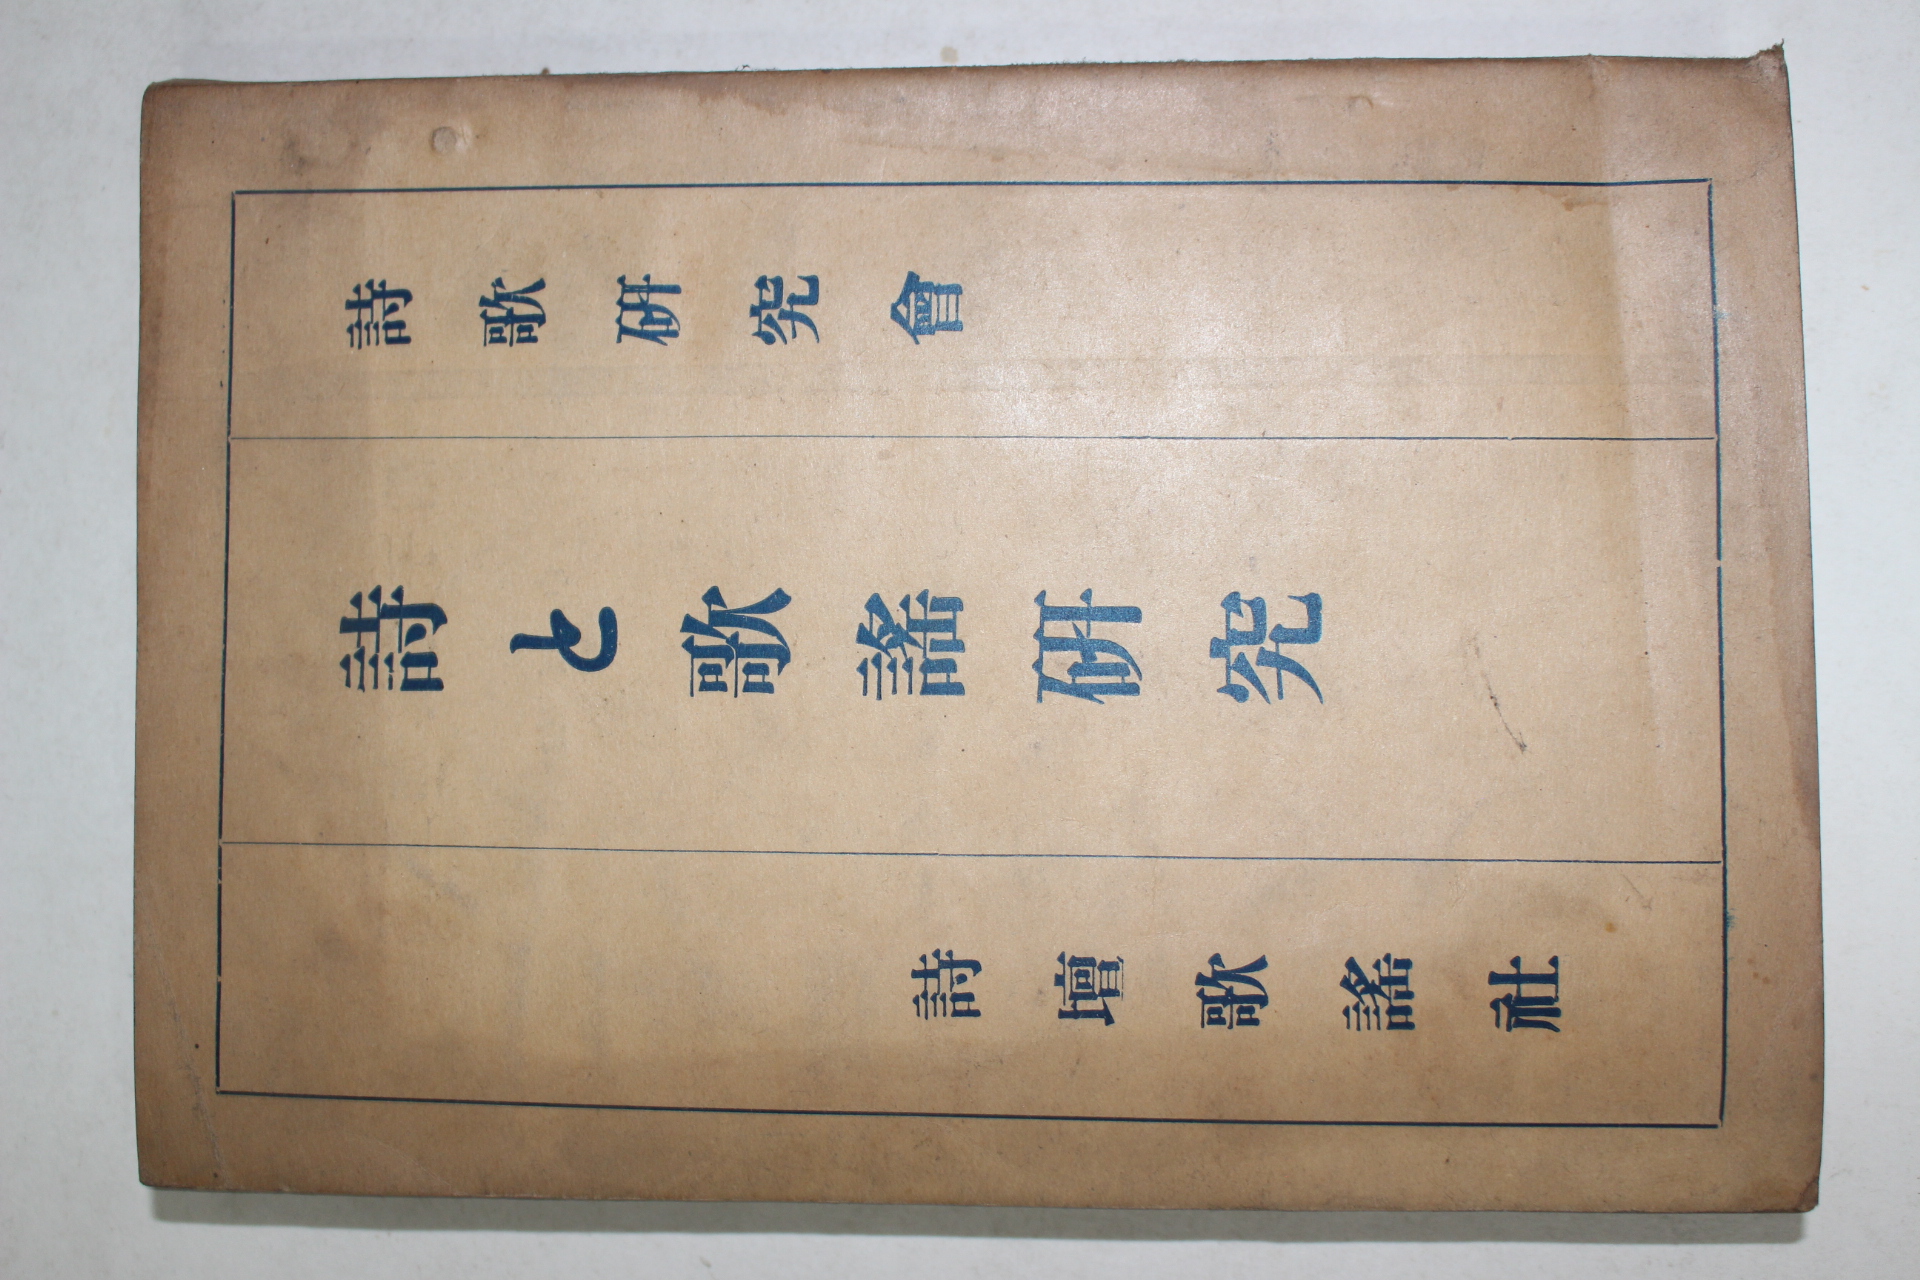 詩歌硏究會
詩と歌謠硏究
詩壇歌謠社